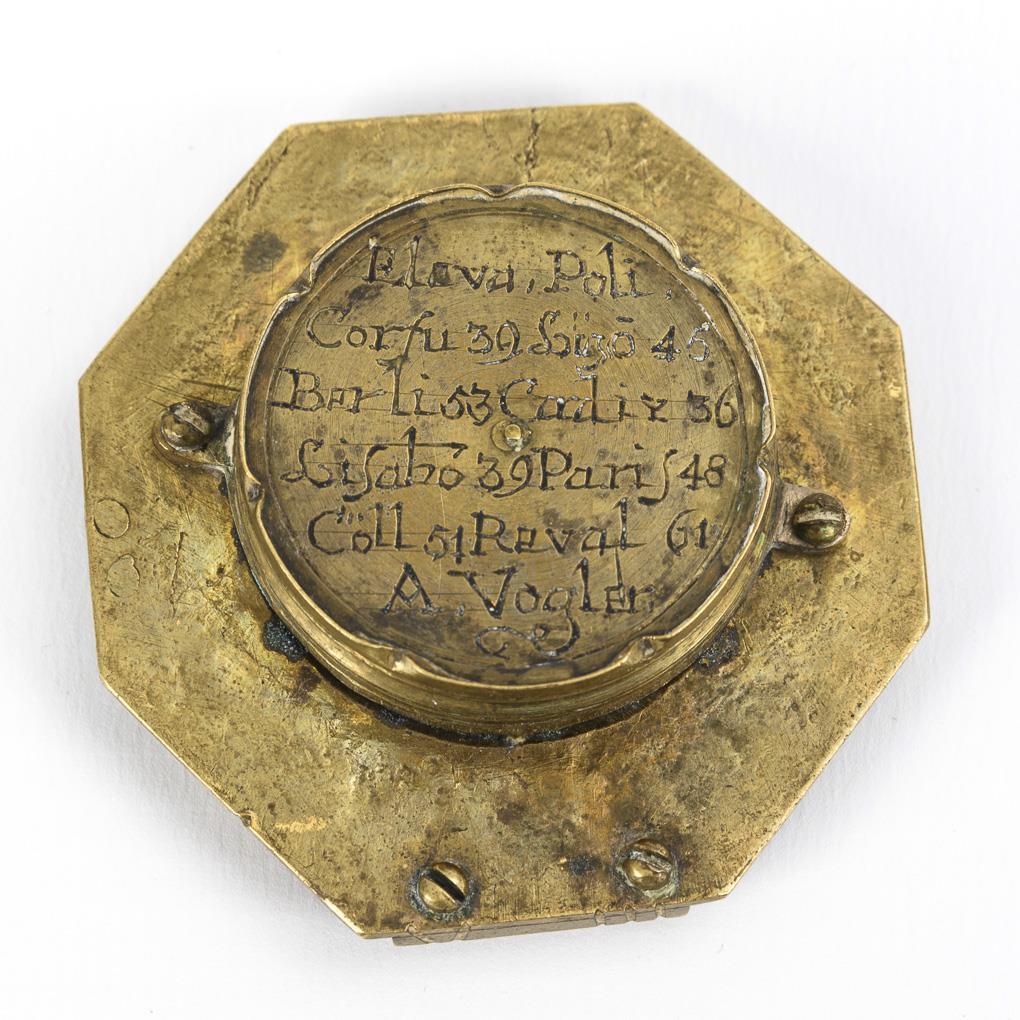 Eleva. Poli.
Corfu 39 Lizō 45
Berli 53 Cadix 36
Lisabō 39 Paris 48
Cöll 51 Reval 61
A. Vogler